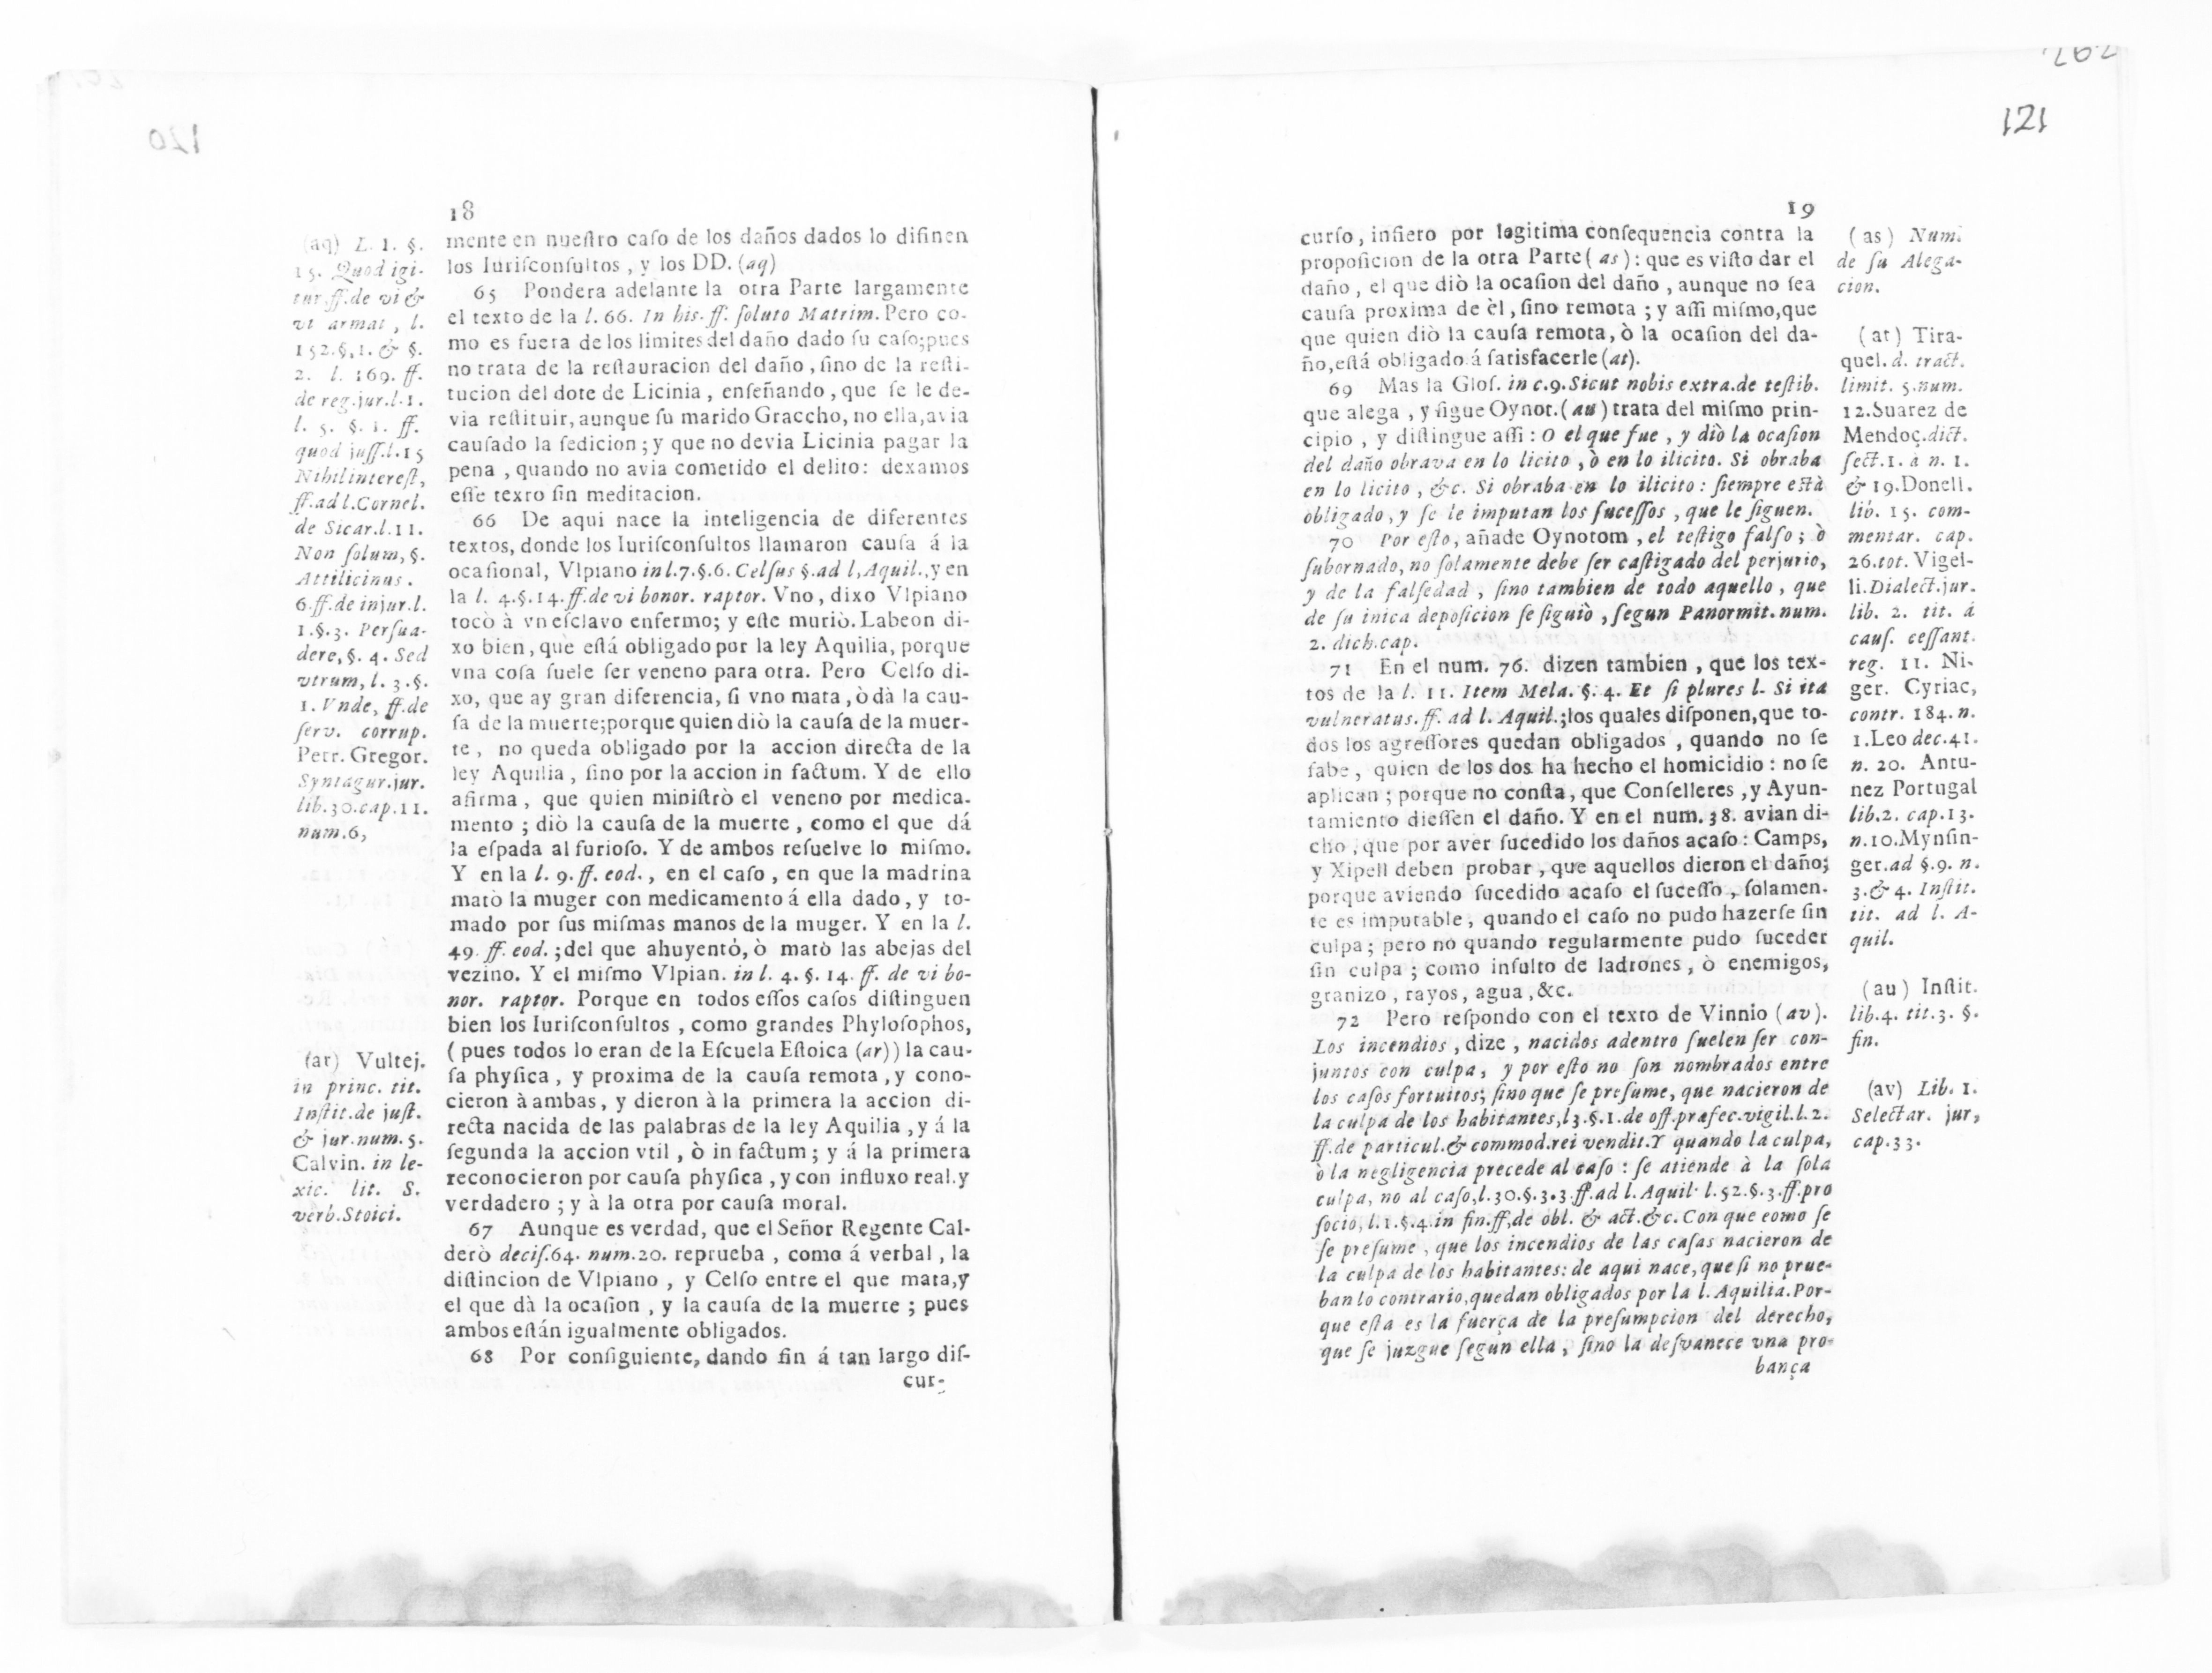 120
18
(aq) L. 1. §.
15. Quod igi-
tur.ff.de vi &
vi armat, l.
152.§.1. & §.
2. l. 169. ff.
de reg.jur.l.1.
l. 5. §. 1. ff.
quod juss.l.15
Nihil interest,
ff.ad l.Cornel.
de Sicar.l.11.
Non ſolum, §.
Attilicinus.
6.ff.de injur.l.
1.§.3. Perſua-
dere, §. 4. Sed
vtrum, l. 3.§.
1. Vnde, ff.de
ſerv. corrup.
Petr. Gregor.
Syntagur.jur.
lib.30.cap.11.
num.6,
(ar) Vultej.
in princ. tit.
Inſtit.de juſt.
& jur.num.5.
Calvin. in le-
xic. lit. S.
verb.Stoici.
mente en nueſtro caſo de los daños dados lo difinen
los Iuriſconſultos, y los DD. (aq)
65 Pondera adelante la otra Parte largamente
el texto de la l. 66. In his. ff. ſoluto Matrim. Pero co-
mo es fuera de los limites del daño dado ſu caſo; pues
no trata de la reſtauracion del daño, ſino de la reſti-
tucion del dote de Licinia, enſeñando, que ſe le de-
via reſtituir, aunque ſu marido Graccho, no ella, avia
cauſado la ſedicion; y que no devia Licinia pagar la
pena, quando no avia cometido el delito: dexamos
eſſe texto ſin meditacion.
66 De aqui nace la inteligencia de diferentes
textos, donde los Iuriſconſultos llamaron cauſa á la
ocaſional, Vlpiano in l.7.§.6. Celſus §.ad l, Aquil., y en
la l. 4.§.14.ff.de vi bonor. raptor. Vno, dixo Vlpiano
tocò à vn eſclavo enfermo; y eſte muriò. Labeon di-
xo bien, que eſtá obligado por la ley Aquilia, porque
vna coſa ſuele ſer veneno para otra. Pero Celſo di-
xo, que ay gran diferencia, ſi vno mata, ò dà la cau-
ſa de la muerte; porque quien diò la cauſa de la muer-
te, no queda obligado por la accion directa de la
ley Aquilia, ſino por la accion in factum. Y de ello
afirma, que quien miniſtrò el veneno por medica-
mento; diò la cauſa de la muerte, como el que dá
la eſpada al furioſo. Y de ambos reſuelve lo miſmo.
Y en la l. 9. ff. eod., en el caſo, en que la madrina
matò la muger con medicamento á ella dado, y to-
mado por ſus miſmas manos de la muger. Y en la l.
49. ff. eod.; del que ahuyentò, ò matò las abejas del
vezino. Y el miſmo Vlpian. in l. 4. §. 14. ff. de vi bo-
nor. raptor. Porque en todos eſſos caſos diſtinguen
bien los Iuriſconſultos, como grandes Phyloſophos,
(pues todos lo eran de la Eſcuela Eſtoica (ar)) la cau-
ſa phyſica, y proxima de la cauſa remota, y cono-
cieron à ambas, y dieron à la primera la accion di-
recta nacida de las palabras de la ley Aquilia, y á la
ſegunda la accion vtil, ò in factum; y á la primera
reconocieron por cauſa phyſica, y con influxo real. y
verdadero; y à la otra por cauſa moral.
67 Aunque es verdad, que el Señor Regente Cal-
derò deciſ.64. num.20. reprueba, como á verbal, la
diſtincion de Vlpiano, y Celſo entre el que mata, y
el que dà la ocaſion, y la cauſa de la muerte; pues
ambos eſtán igualmente obligados.
68 Por conſiguiente, dando fin á tan largo diſ-
cur-
121
19
curſo, infiero por legitima conſequencia contra la
propoſicion de la otra Parte (as): que es viſto dar el
daño, el que diò la ocaſion del daño, aunque no ſea
cauſa proxima de èl, ſino remota; y aſſi miſmo, que
que quien diò la cauſa remota, ò la ocaſion del da-
ño, eſtá obligado á ſatisfacerle (at).
69 Mas la Gloſ. in c.9. Sicut nobis extra.de teſtib.
que alega, y ſigue Oynot. (au) trata del miſmo prin-
cipio, y diſtingue aſſi: O el que fue, y diò la ocaſion
del daño obrava en lo licito, ò en lo ilicito. Si obraba
en lo licito, &c. Si obraba en lo ilicito: ſiempre eſtà
obligado, y ſe le imputan los ſuceſſos, que le ſiguen.
70 Por eſto, añade Oynotom, el teſtigo falſo; ò
ſubornado, no ſolamente debe ſer caſtigado del perjurio,
y de la falſedad, ſino tambien de todo aquello, que
de ſu inica depoſicion ſe ſiguiò, ſegun Panormit. num.
2. dich.cap.
71 En el num. 76. dizen tambien, que los tex-
tos de la l. 11. Item Mela. §. 4. Et ſi plures l. Si ita
vulneratus. ff. ad l. Aquil.; los quales diſponen, que to-
dos los agreſſores quedan obligados, quando no ſe
ſabe, quien de los dos ha hecho el homicidio: no ſe
aplican; porque no conſta, que Conſelleres, y Ayun-
tamiento dieſſen el daño. Y en el num. 38. avian di-
cho, que por aver ſucedido los daños acaſo: Camps,
y Xipell deben probar, que aquellos dieron el daño;
porque aviendo ſucedido acaſo el ſuceſſo, ſolamen-
te es imputable, quando el caſo no pudo hazerſe ſin
culpa; pero no quando regularmente pudo ſuceder
ſin culpa; como inſulto de ladrones, ò enemigos,
granizo, rayos, agua, &c.
72 Pero reſpondo con el texto de Vinnio (av).
Los incendios, dize, nacidos adentro ſuelen ſer con-
juntos con culpa, y por eſto no ſon nombrados entre
los caſos fortuitos; ſino que ſe preſume, que nacieron de
la culpa de los habitantes, l 3.§.1.de off.præfec.vigil.l.2.
ff.de particul.& commod.rei vendit. Y quando la culpa,
ò la negligencia precede al caſo: ſe atiende à la ſola
culpa, no al caſo, l.30.§.3.3.ff.ad l. Aquil. l.52.§.3.ff.pro
ſocio, l.1.§.4.in fin.ff,de obl. & act.&c. Con que como ſe
ſe preſume, que los incendios de las caſas nacieron de
la culpa de los habitantes: de aqui nace, que ſi no prue-
ban lo contrario, quedan obligados por la l. Aquilia. Por-
que eſta es la fuerça de la preſumpcion del derecho,
que ſe juzgue ſegun ella, ſino la deſvanece vna pro-
bança
(as) Num.
de ſu Alega-
cion.
(at) Tira-
quel. d. tract.
limit. 5.num.
12.Suarez de
Mendoç.dict.
ſect.1. à n. 1.
& 19.Donell.
lib. 15. com-
mentar. cap.
26.tot. Vigel-
li. Dialect.jur.
lib. 2. tit. á
cauſ. ceſſant.
reg. 11. Ni-
ger. Cyriac,
contr. 184. n.
1.Leo dec.41.
n. 20. Antu-
nez Portugal
lib.2. cap.13.
n.10.Mynſin-
ger.ad §.9. n.
3.& 4. Inſtit.
tit. ad l. A-
quil.
(au) Inſtit.
lib.4. tit.3. §.
fin.
(av) Lib. 1.
Selectar. jur,
cap.33.